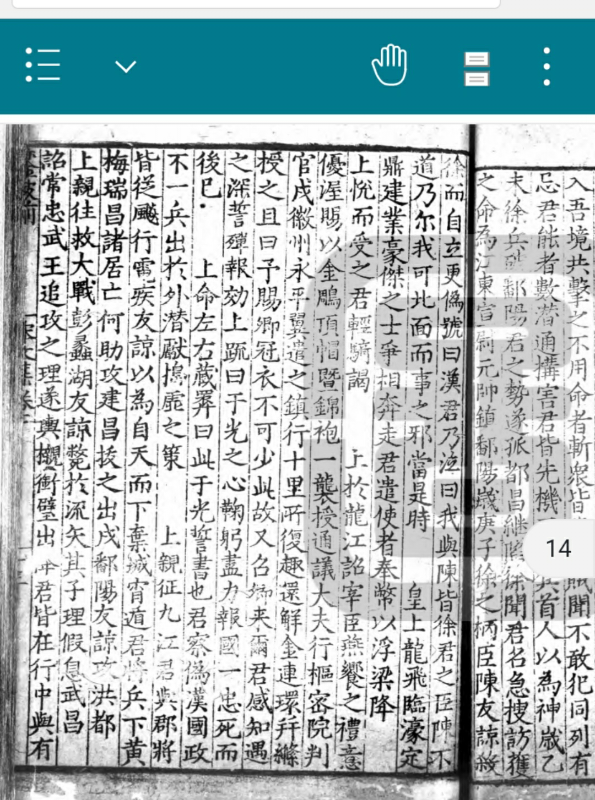 入吾境共擊之不用命者斬衆皆賊聞不敢犯同列有
忌君能者數潛通搆害君皆先機首人以為神歲乙
未徐兵鄱陽君之勢遂孤都昌繼陷徐聞君名急搜訪獲
之命為江東宣尉元帥鎮鄱陽歲庚子徐之柄臣陳友諒殺
徐而自立更偽號曰漢君乃泣曰我與陳皆徐君之臣陳不
道乃尔我可北面而事之邪當是時 皇上龍飛臨濠定
鼎建業豪傑之士爭相奔走君遣使者奉幣以浮梁降
上悅而受之君輕騎謁 上於龍江詔宰臣燕饗之禮意
優渥賜以金鵰頂帽暨錦袍一襲授通議大夫行樞密院判
官戍徽州永平翼遣之鎮行十里所復趣還解金連環幷絛
授之且曰予賜卿冠衣不可少此故又召卿来爾君感知遇
之深誓殫報効上䟽曰于光之心鞠躬盡力報國一忠死而
後已 上命左右藏弆曰此于光誓書也君察偽漢國政
不一兵出於外潛獻搗虛之策 上親征九江君與郡將
皆從飈行電疾友諒以為自天而下棄城宵遁君將兵下黃
梅瑞昌諸居亡何助攻建昌拔之出戍鄱陽友諒攻洪都
上親往救大戰彭蠡湖友諒斃於流矢其子理假息武昌
詔常忠武王追攻之理遂輿櫬銜璧出降君皆在行中與有
14